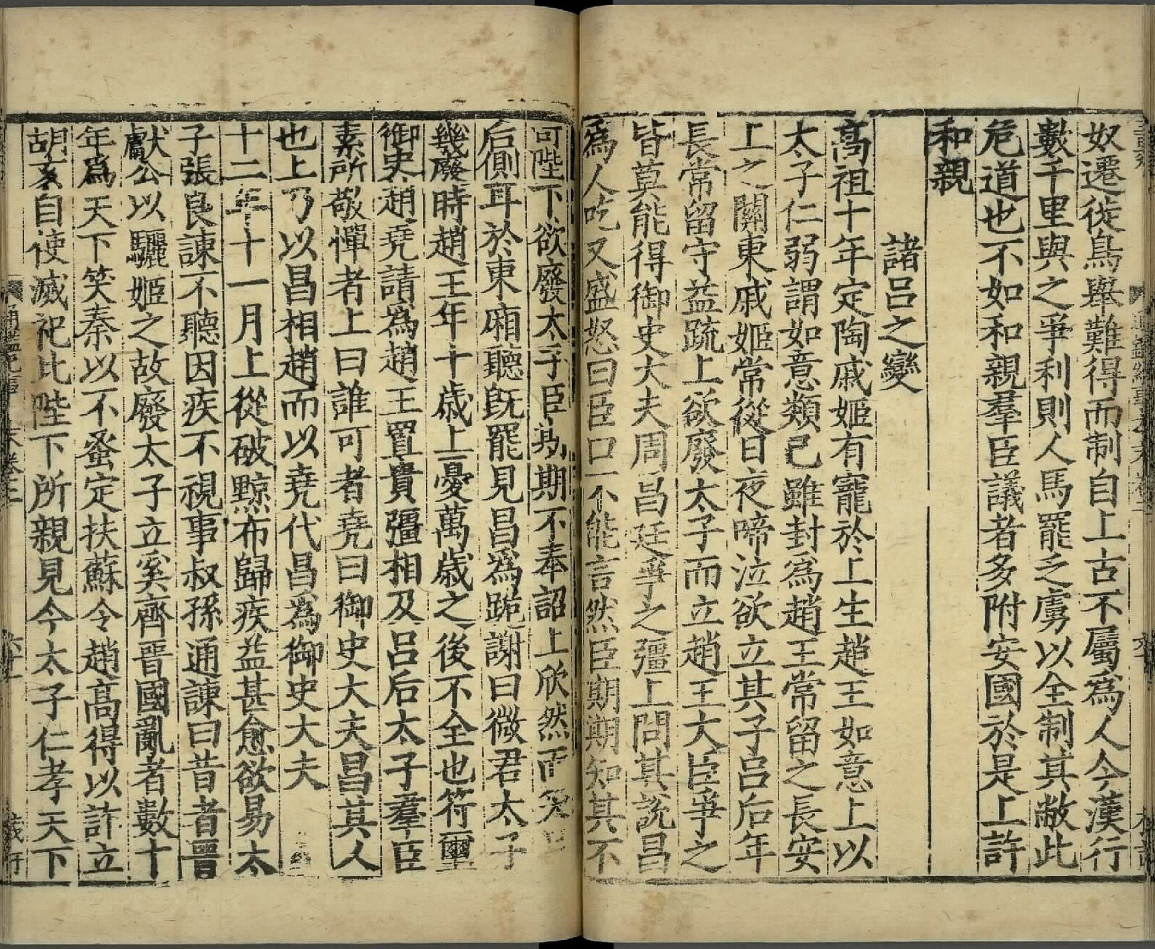 奴遷徙鳥舉難得而制自上古不屬為人今漢行
數千里與之爭利則人馬罷乏虜以全制其敝此
危道也不如和親羣臣議者多附安國於是上許
和親
諸呂之變
高祖十年定陶戚姬有寵於上生趙王如意上以
太子仁弱謂如意類已雖封為趙王常留之長安
上之關東戚姬常從日夜啼泣欲立其子呂后年
長常留守益疏上欲廢太子而立趙王大臣爭之
皆莫能得御史大夫周昌廷爭之彊上問其說昌
為人吃又盛怒曰臣口不能言然臣期期知其不
可陛下欲廢太子臣期期不奉詔上欣然而笑呂
后側耳於東廂聽既罷見昌為跪謝曰微君太子
幾廢時趙王年十歲上憂萬歲之後不全也符璽
御史趙堯請為趙王置貴彊相及呂后太子羣臣
素所敬憚者上曰誰可者堯曰御史大夫昌其人
也上乃以昌相趙而以堯代昌為御史大夫
十二年十一月上從破黥布歸疾益甚愈欲易太
子張良諫不聽因疾不視事叔孫通諫曰昔者晉
獻公以驪姬之故廢太子立奚齊晉國亂者數十
年為天下笑秦以不蚤定扶蘇令趙高得以詐立
胡亥自使滅祀此陛下所親見今太子仁孝天下